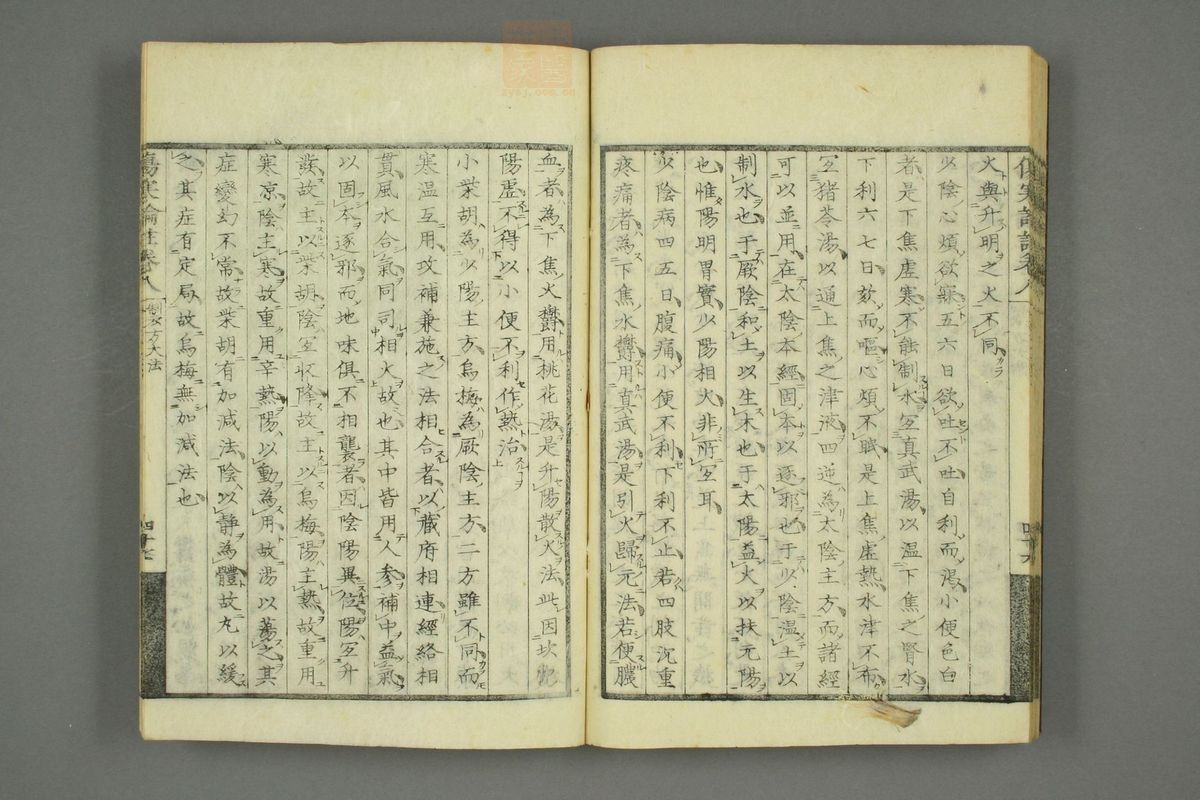 火與升明之火不同
少陰心煩欲寐五六日欲吐不吐自利而渴小便色白
者是下焦虛寒不能制水宜真武湯以温下焦之腎水
下利六七日欬而嘔心煩不眠是上焦虛熱水津不布
宜猪苓湯以通上焦之津液四逆為太陰主方而諸經
可以並用在太陰本經固本以逐邪也于少陰温土以
制水也于厥陰和土以生木也于太陽益火以扶元陽
也惟陽明胃實少陽相火非所宜耳
少陰病四五日腹痛小便不利下利不止若四肢沉重
疼痛者為下焦水欝用真武湯是引火歸元法若便膿
血者為下焦火欝用桃花湯是升陽散火法此因坎
陽虛不得以小便不利作熱治
小柴胡為少陽主方烏梅為厥陰主方二方雖不同而
寒温互用攻補兼施之法相合者以藏府相連經絡相
貫風水合氣同司相火故也其中皆用人參補中益氣
以固本逐邪而地味俱不相襲者因陰陽異位陽宜升
發故主以柴胡陰宜收降故主以烏梅陽主熱故重用
寒凉陰主寒故重用辛熱陽以動為用故湯以蕩之其
症變幻不常故柴胡有加減法陰以靜為體故丸以緩
之其症有定局故烏梅無加減法也
傷寒論註卷八
制方大法